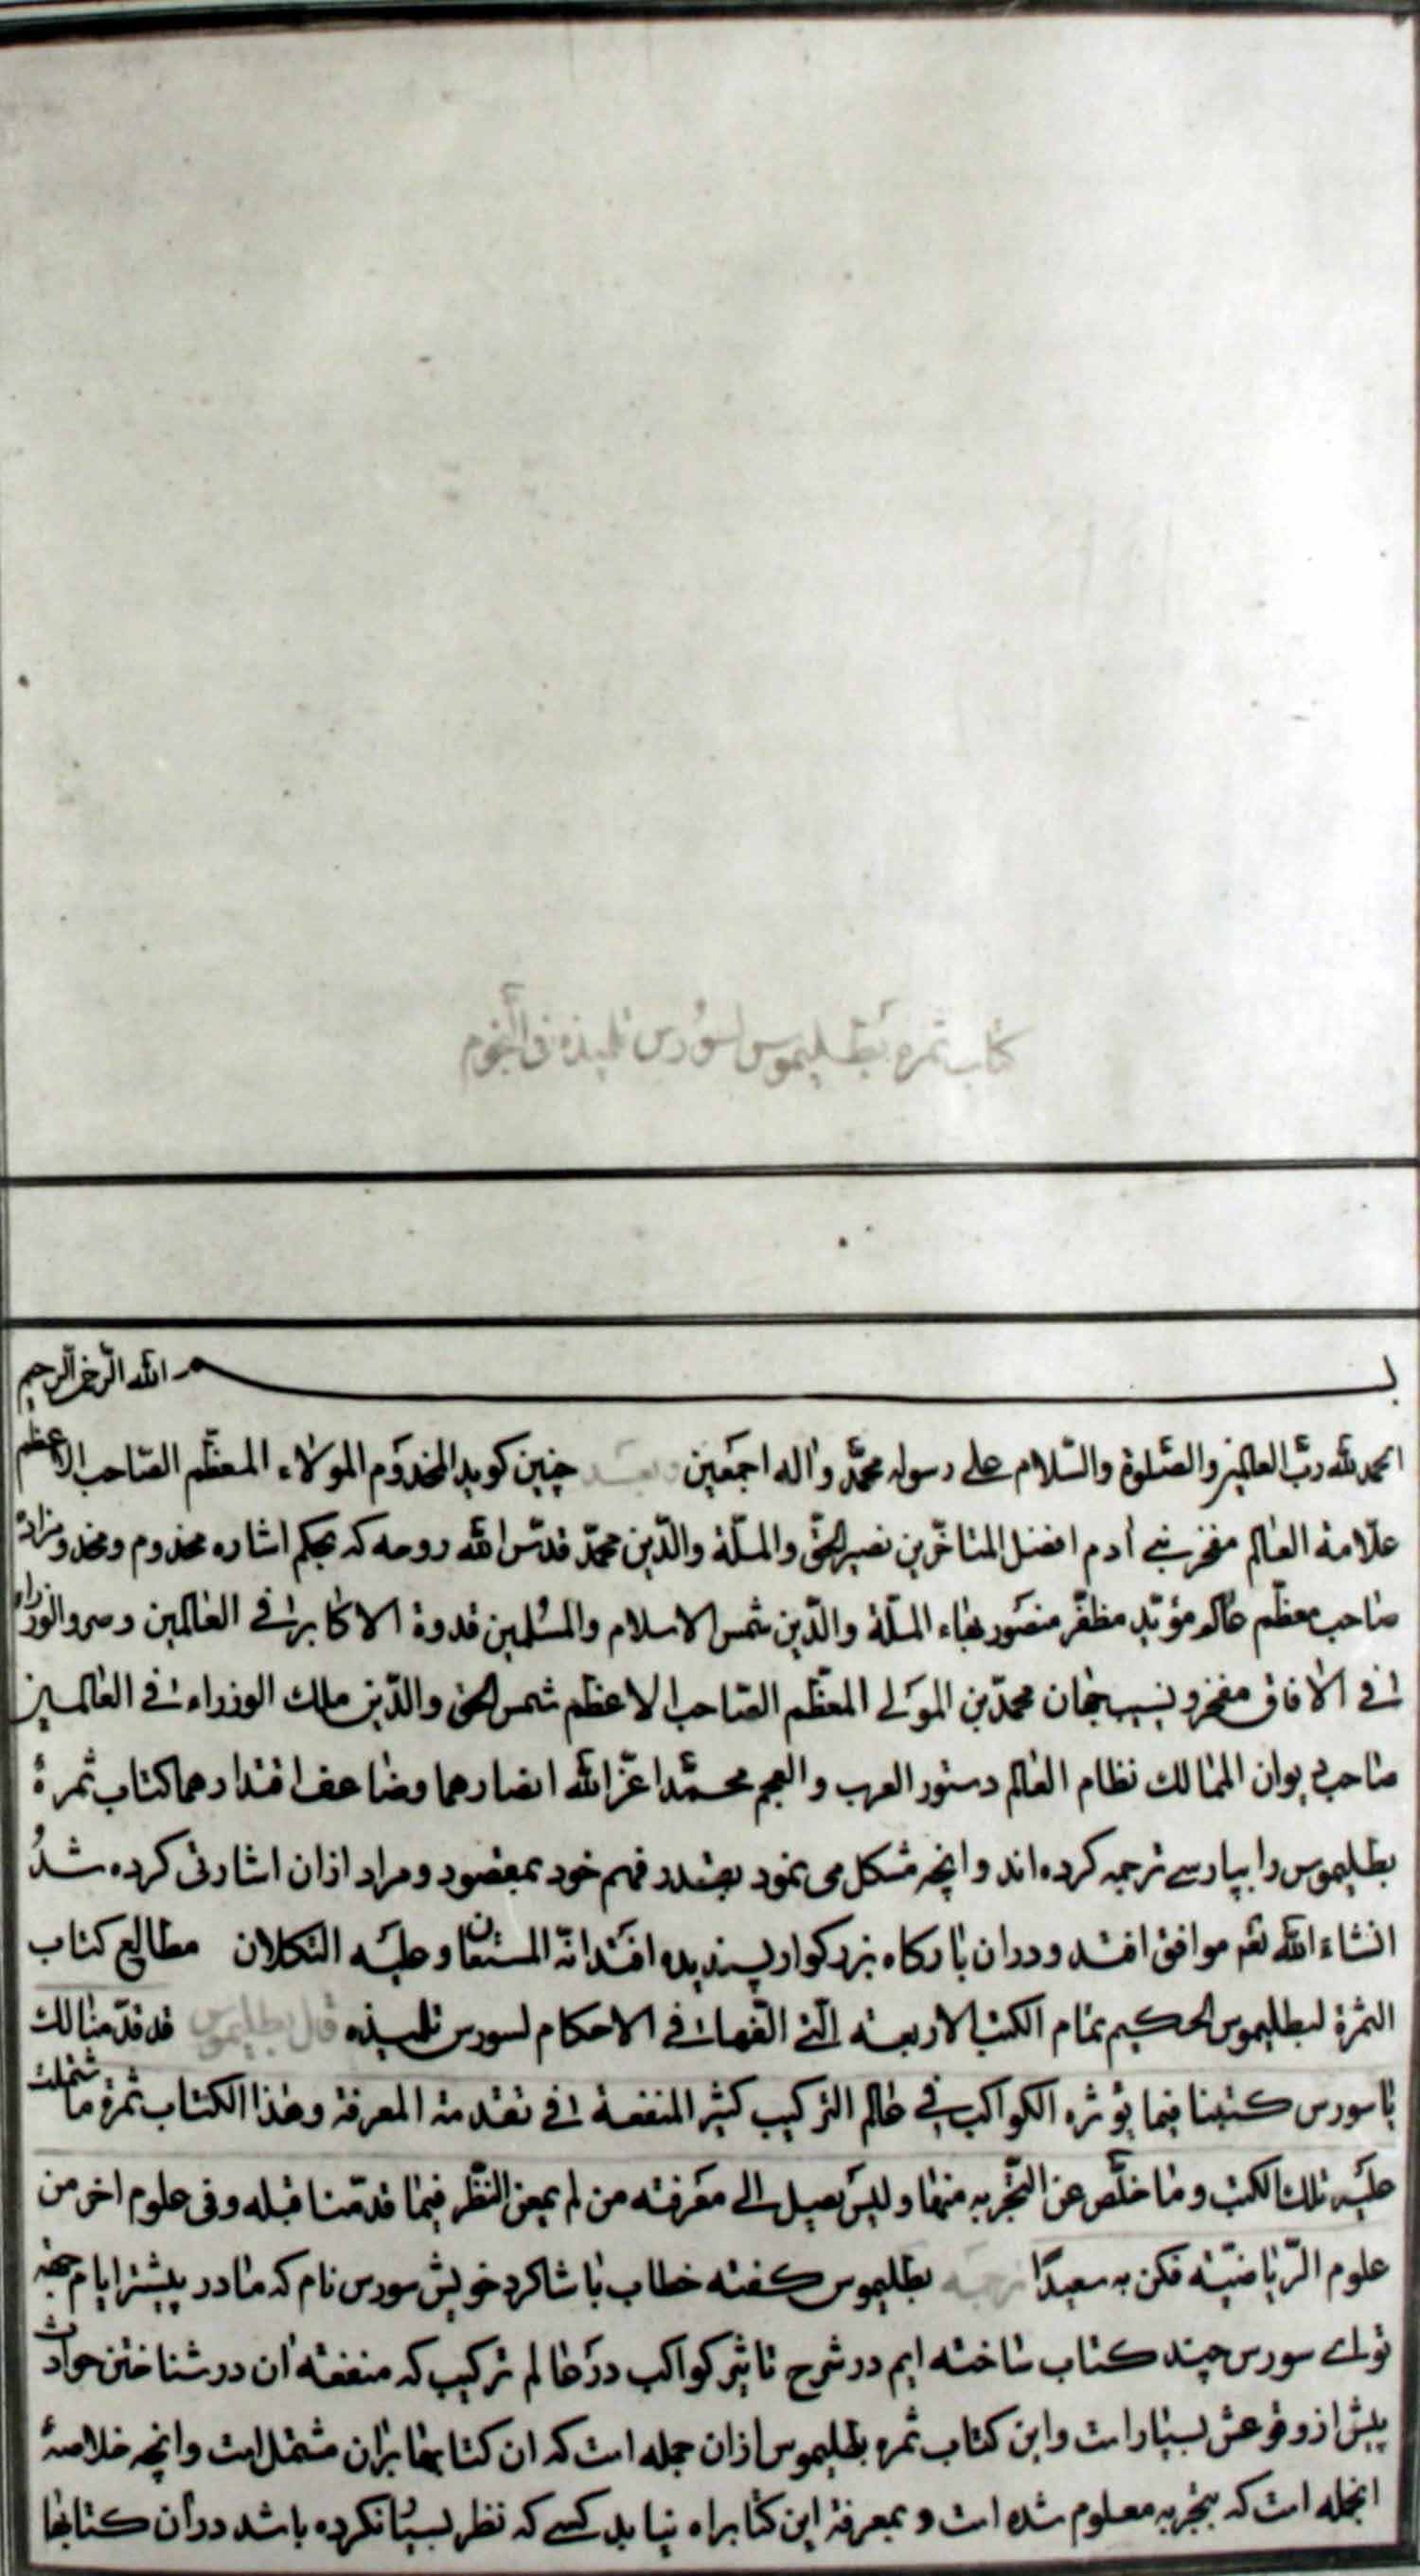 کتاب ثمره بطلیموس لسورس تلمیذه فی النجوم
بسم الله الرحمن الرحیم
الحمد لله ربّ العالمین والصّلوة والسّلام علی رسوله محمّد واله اجمعین وبعد چنین کوید المخدوم المولاء المعظّم الصّاحب الاعظم
علّامة العالم مفخر بنی آدم افضل المتاخّرین نصیر الحقّ والملّة والدّین محمّد قدّس الله روحه که بحکم اشاره مخدوم ومخدوم زاده
صاحب معظّم عالم مؤیّد مظفّر منصور بهاء الملّة والدّین شمس الاسلام والمسلمین قدوة الاکابر فی العالمین وصدر الوزراء
فی الافاق مفخر جهان محمّد بن المولی المعظّم الصّاحب الاعظم شمس الحق والدّین ملک الوزراء فی العالمین
صاحب دیوان الممالک نظام العالم دستور العرب والعجم محمّد اعزّ الله انصارهما وضاعف اقتدارهما کتاب ثمرهٔ
بطلیموس را بپارسی ترجمه کرده اند وانچه مشکل می نمود بقدر فهم خود بمقصود ومراد ازان اشارتی کرده شد
انشاءالله تعم موافق افتد ودران بارکاه بزرکوار پسندیده افتد انّه المستعان وعلیه التکلان مطالع کتاب
الثمرة لبطلیموس الحکیم تمام الکتب الاربعة الّتی الّفها فی الاحکام لسورس تلمیذه قال بطلیموس قد قدّمنا لک
یا سورس کتبنا فیما یؤثره الکواکب فی عالم الترکیب کثیر المنفعة فی تقدمة المعرفة وهذا الکتاب ثمرة ما اشتملت
علیه تلک الکتب وما خلّص عن التّجربه منها ولیس یصل الی معرفته من لم یمعن النّظر فیما قدّمنا قبله وفی علوم اخر من
علوم الرّیاضیّة فکن به سعیدًا ترجمه بطلیموس کفته خطاب با شاکرد خویش سورس نام که ما در پیشتر ایام جهة
تو ای سورس چند کتاب ساخته ایم در شرح تاثیر کواکب در عالم ترکیب که منفعة ان در شناختن حوادث
پیش از وقوعش بسیار است واین کتاب ثمره بطلیموس ازان جمله است که ان کتابها بران مشتمل است وانچه خلاصهٔ
انجمله است که بتجربه معلوم شده است و بمعرفة این کتاب راه نیابد کسی که نظر بسیار نکرده باشد دران کتابها